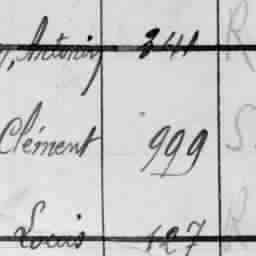 Antonin 341 R
Clément 999 S
Louis 127 R